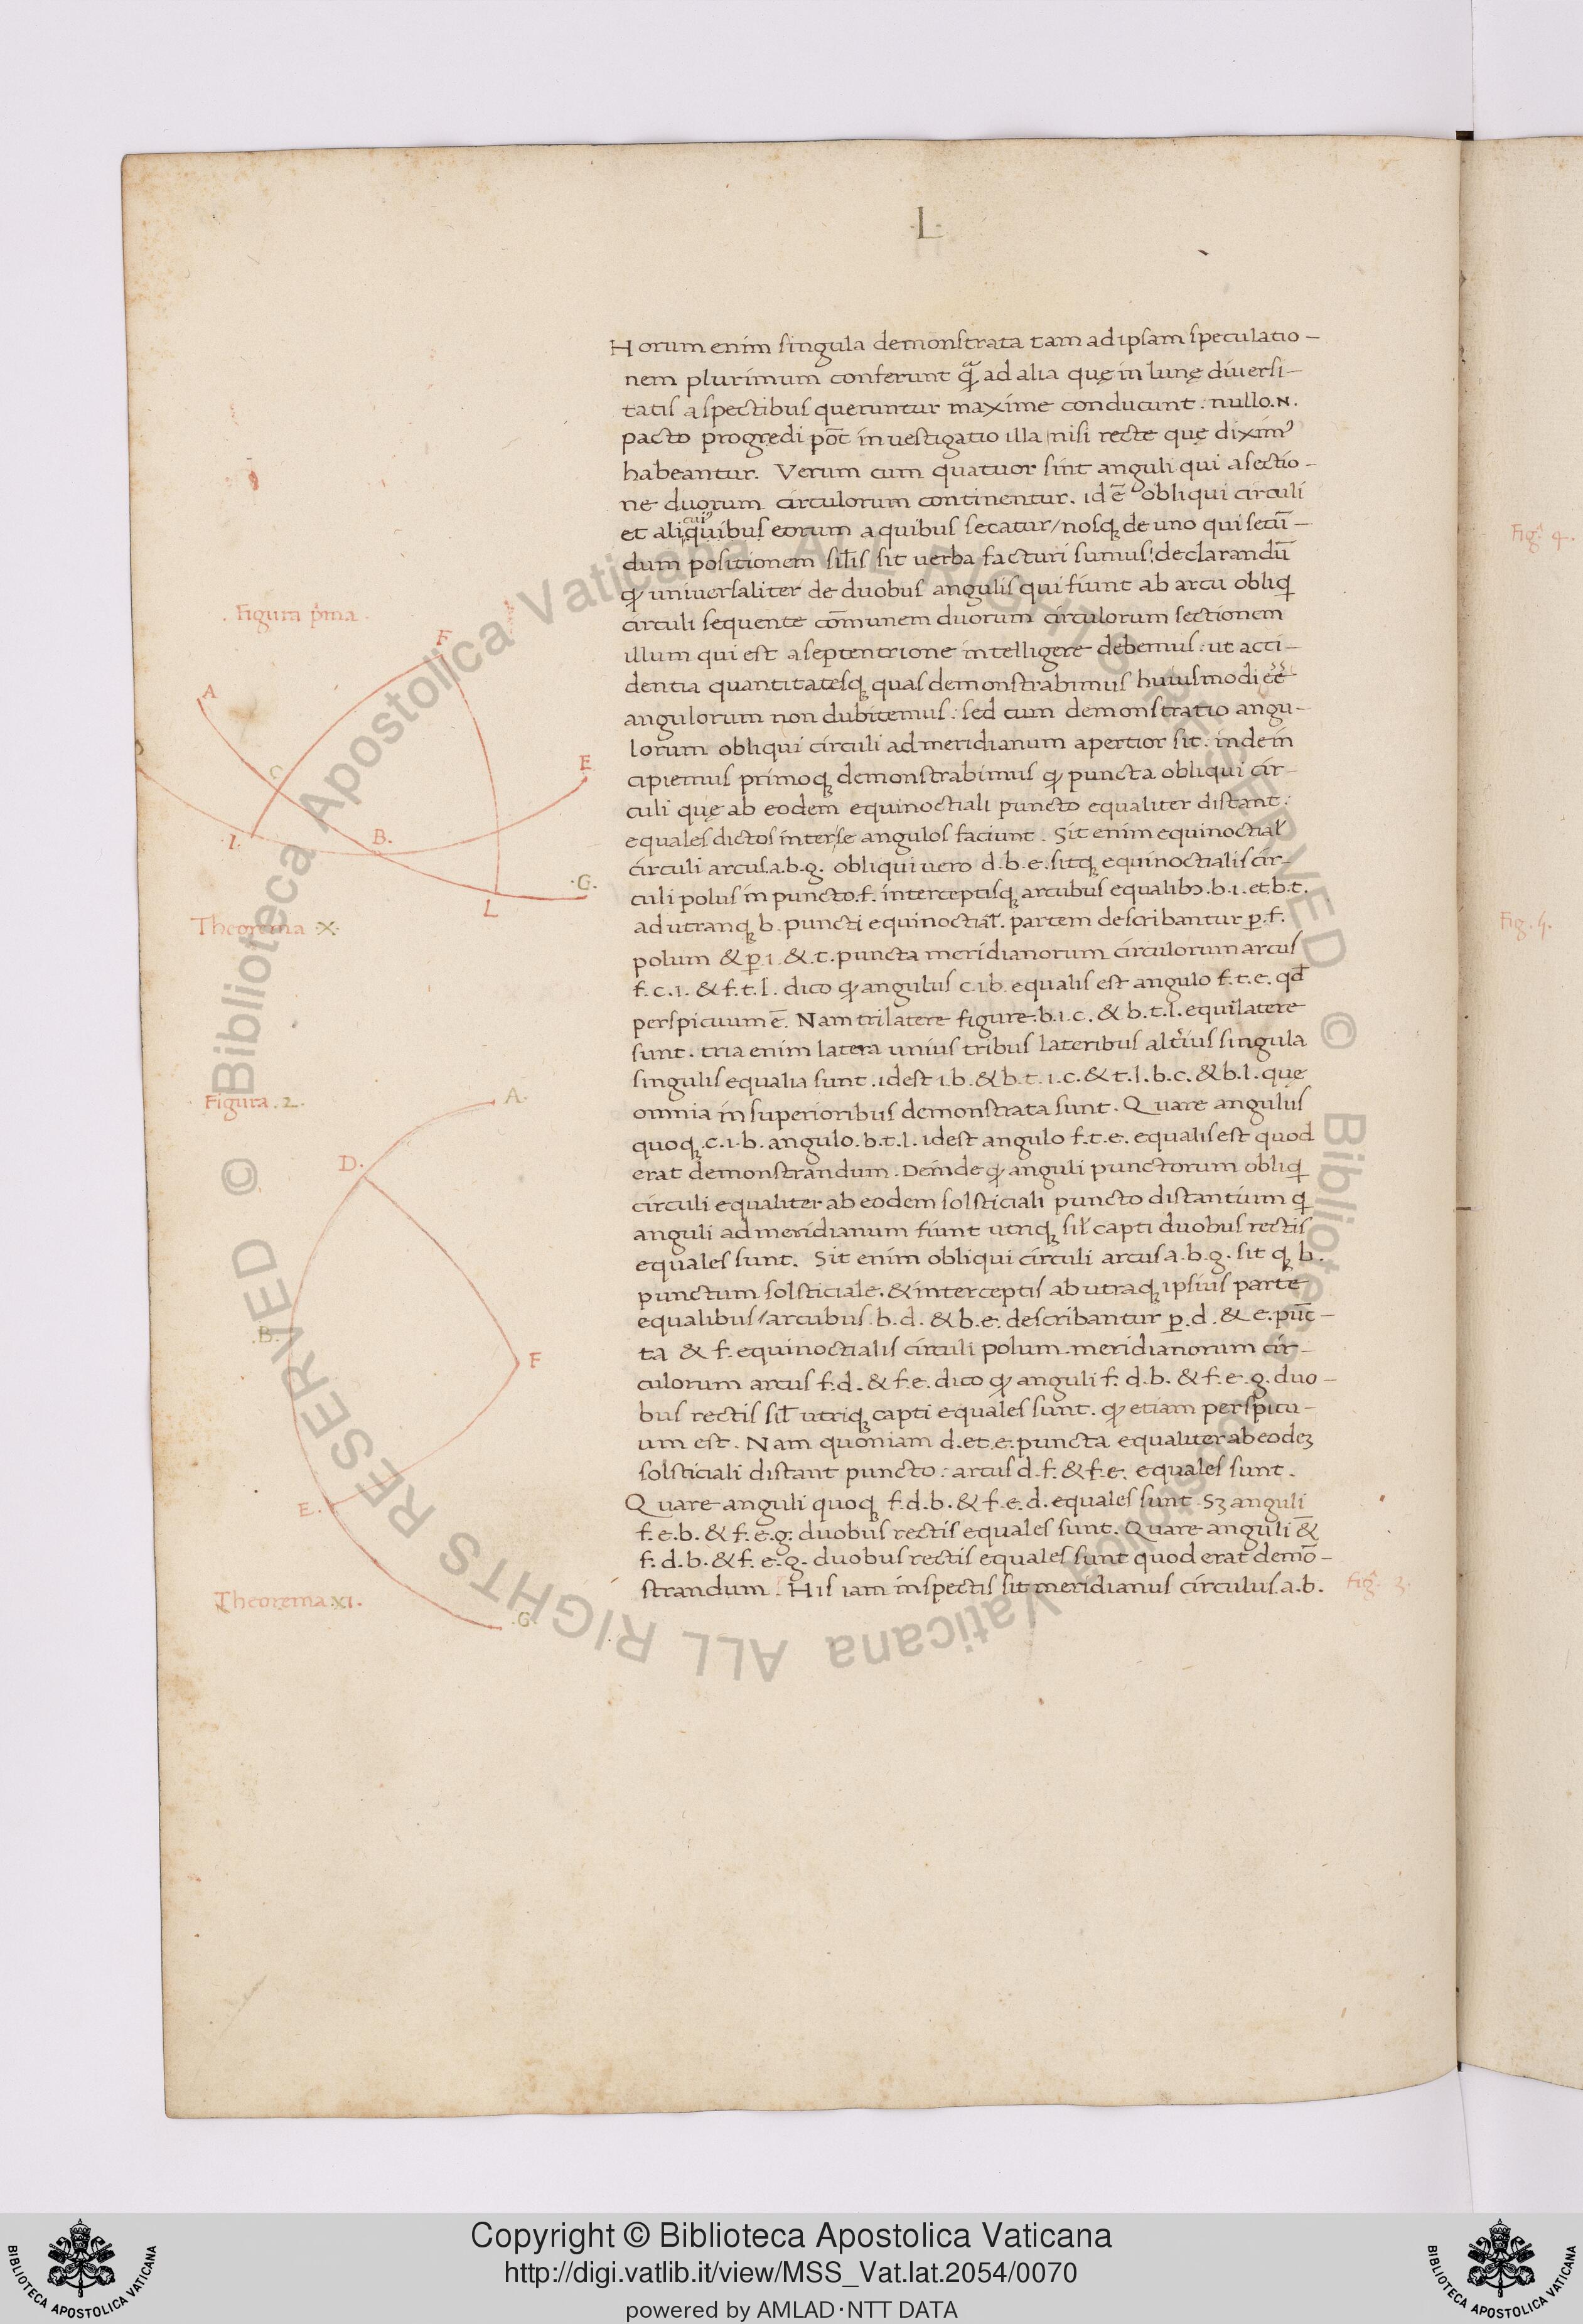 ·L·
Horum enim singula demonstrata tam ad ipsam speculatio-
nem plurimum conferunt q̃ ad alia quę in lunę diuersi-
tatis aspectibus queruntur maxime conducunt: nullo.n.
pacto progredi põt inuestigatio illa nisi recte quę diximꝰ
habeantur. Verum cum quatuor sint anguli qui a sectio-
ne duorum circulorum continentur. id ẽ obliqui circuli
et aliquibus eorum a quibus secatur/nosqꝫ de uno qui secũ-
dum positionem sil̃is sit uerba facturi sumus: declarandũ
ꝙ uniuersaliter de duobus angulis qui fiunt ab arcu obliqi
circuli sequente cõmunem duorum circulorum sectionem
illum qui est a septentrione intelligere debemus: ut acci-
dentia quantitatesqꝫ quas demonstrabimus huiusmodi eẽ
angulorum non dubitemus: sed cum demonstratio angu-
lorum obliqui circuli ad meridianum apertior sit: inde in
cipiemus primoqꝫ demonstrabimus ꝙ puncta obliqui cir-
culi quę ab eodem equinoctiali puncto equaliter distant:
equales dictos inter se angulos faciunt. Sit enim equinoctial̃
circuli arcus.a.b.g. obliqui uero d.b.e. sitqꝫ equinoctialis cir-
culi polus in puncto.f. interceptisqꝫ arcubus equalibꝰ.b.i. et.b.t.
ad utranqꝫ b. puncti equinoctial̃. partem describantur ꝑ.f.
polum & ꝑ.i. &.t. puncta meridianorum circulorum arcus
f.c.i. & f.t.l. dico ꝙ angulus c.i.b. equalis est angulo f.t.e. qd̃
perspicuum ẽ. Nam trilatere figure.b.i.c. & b.t.l. equilatere
sunt. tria enim latera unius tribus lateribus alterius singula
singulis equalia sunt. idest i.b. & b.t. i.c. & t.l. b.c. & b.l. quę
omnia in superioribus demonstrata sunt. Quare angulus
quoqꝫ.c.i.b. angulo.b.t.l. idest angulo f.t.e. equalis est quod
erat demonstrandum. Deinde ꝙ anguli punctorum obliqi
circuli equaliter ab eodem solsticiali puncto distantium qi
anguli ad meridianum fiunt utriqꝫ sil̃ capti duobus rectis
equales sunt. Sit enim obliqui circuli arcus a.b.g. sit qꝫ b.
punctum solsticiale. & interceptis ab utraqꝫ ipsius parte
equalibus/arcubus.b.d. & b.e. describantur ꝑ.d. & e. pũc-
ta & f. equinoctialis circuli polum meridianorum cir-
culorum arcus f.d. & f.e. dico ꝙ anguli f.d.b. & f.e.g. duo-
bus rectis sil̃ utriqꝫ capti equales sunt. ꝙ etiam perspicu-
um est. Nam quoniam d. et.e. puncta equaliter ab eodeꝫ
solsticiali distant puncto: arcus d.f. & f.e. equales sunt.
Quare anguli quoqꝫ f.d.b. & f.e.d. equales sunt Sꝫ anguli
f.e.b. & f.e.g. duobus rectis equales sunt. Quare anguli &
f.d.b. & f.e.g. duobus rectis equales sunt quod erat demõ-
strandum. His iam inspectis sit meridianus circulus.a.b.
Figura pͥma
F
A
C
E
I.
B.
.G.
L
Theorema .X.
Figura .2.
A.
D.
.B.
F
E.
.G.
Theorema .XI.
Fig. 3.
Figͣ 4.
Fig. 5.
© Biblioteca Apostolica Vaticana ALL RIGHTS RESERVED © Biblioteca Apostolica Vaticana ALL RIGHTS RESERVED
Copyright © Biblioteca Apostolica Vaticana
http://digi.vatlib.it/view/MSS_Vat.lat.2054/0070
powered by AMLAD·NTT DATA
BIBLIOTECA APOSTOLICA VATICANA
BIBLIOTECA APOSTOLICA VATICANA